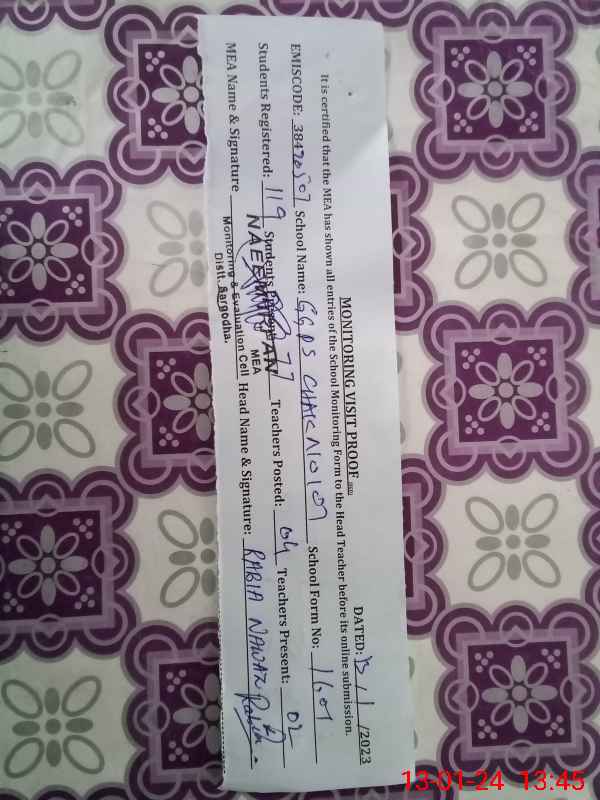 MONITORING VISIT PROOF
DATED: 13 / 1 /2023
It is certified that the MEA has shown all entries of the School Monitoring Form to the Head Teacher before its online submission.
EMISCODE: School Name: GGPS CHAK NO 107 School Form No: 1601
Students Registered: 119 Students Present: 77 Teachers Posted: 04 Teachers Present: 02
MEA Name & Signature Head Name & Signature: RABIA NAWAZ
MEA
Monitoring & Evaluation Cell
Distt. Sargodha.
13-01-24 13:45